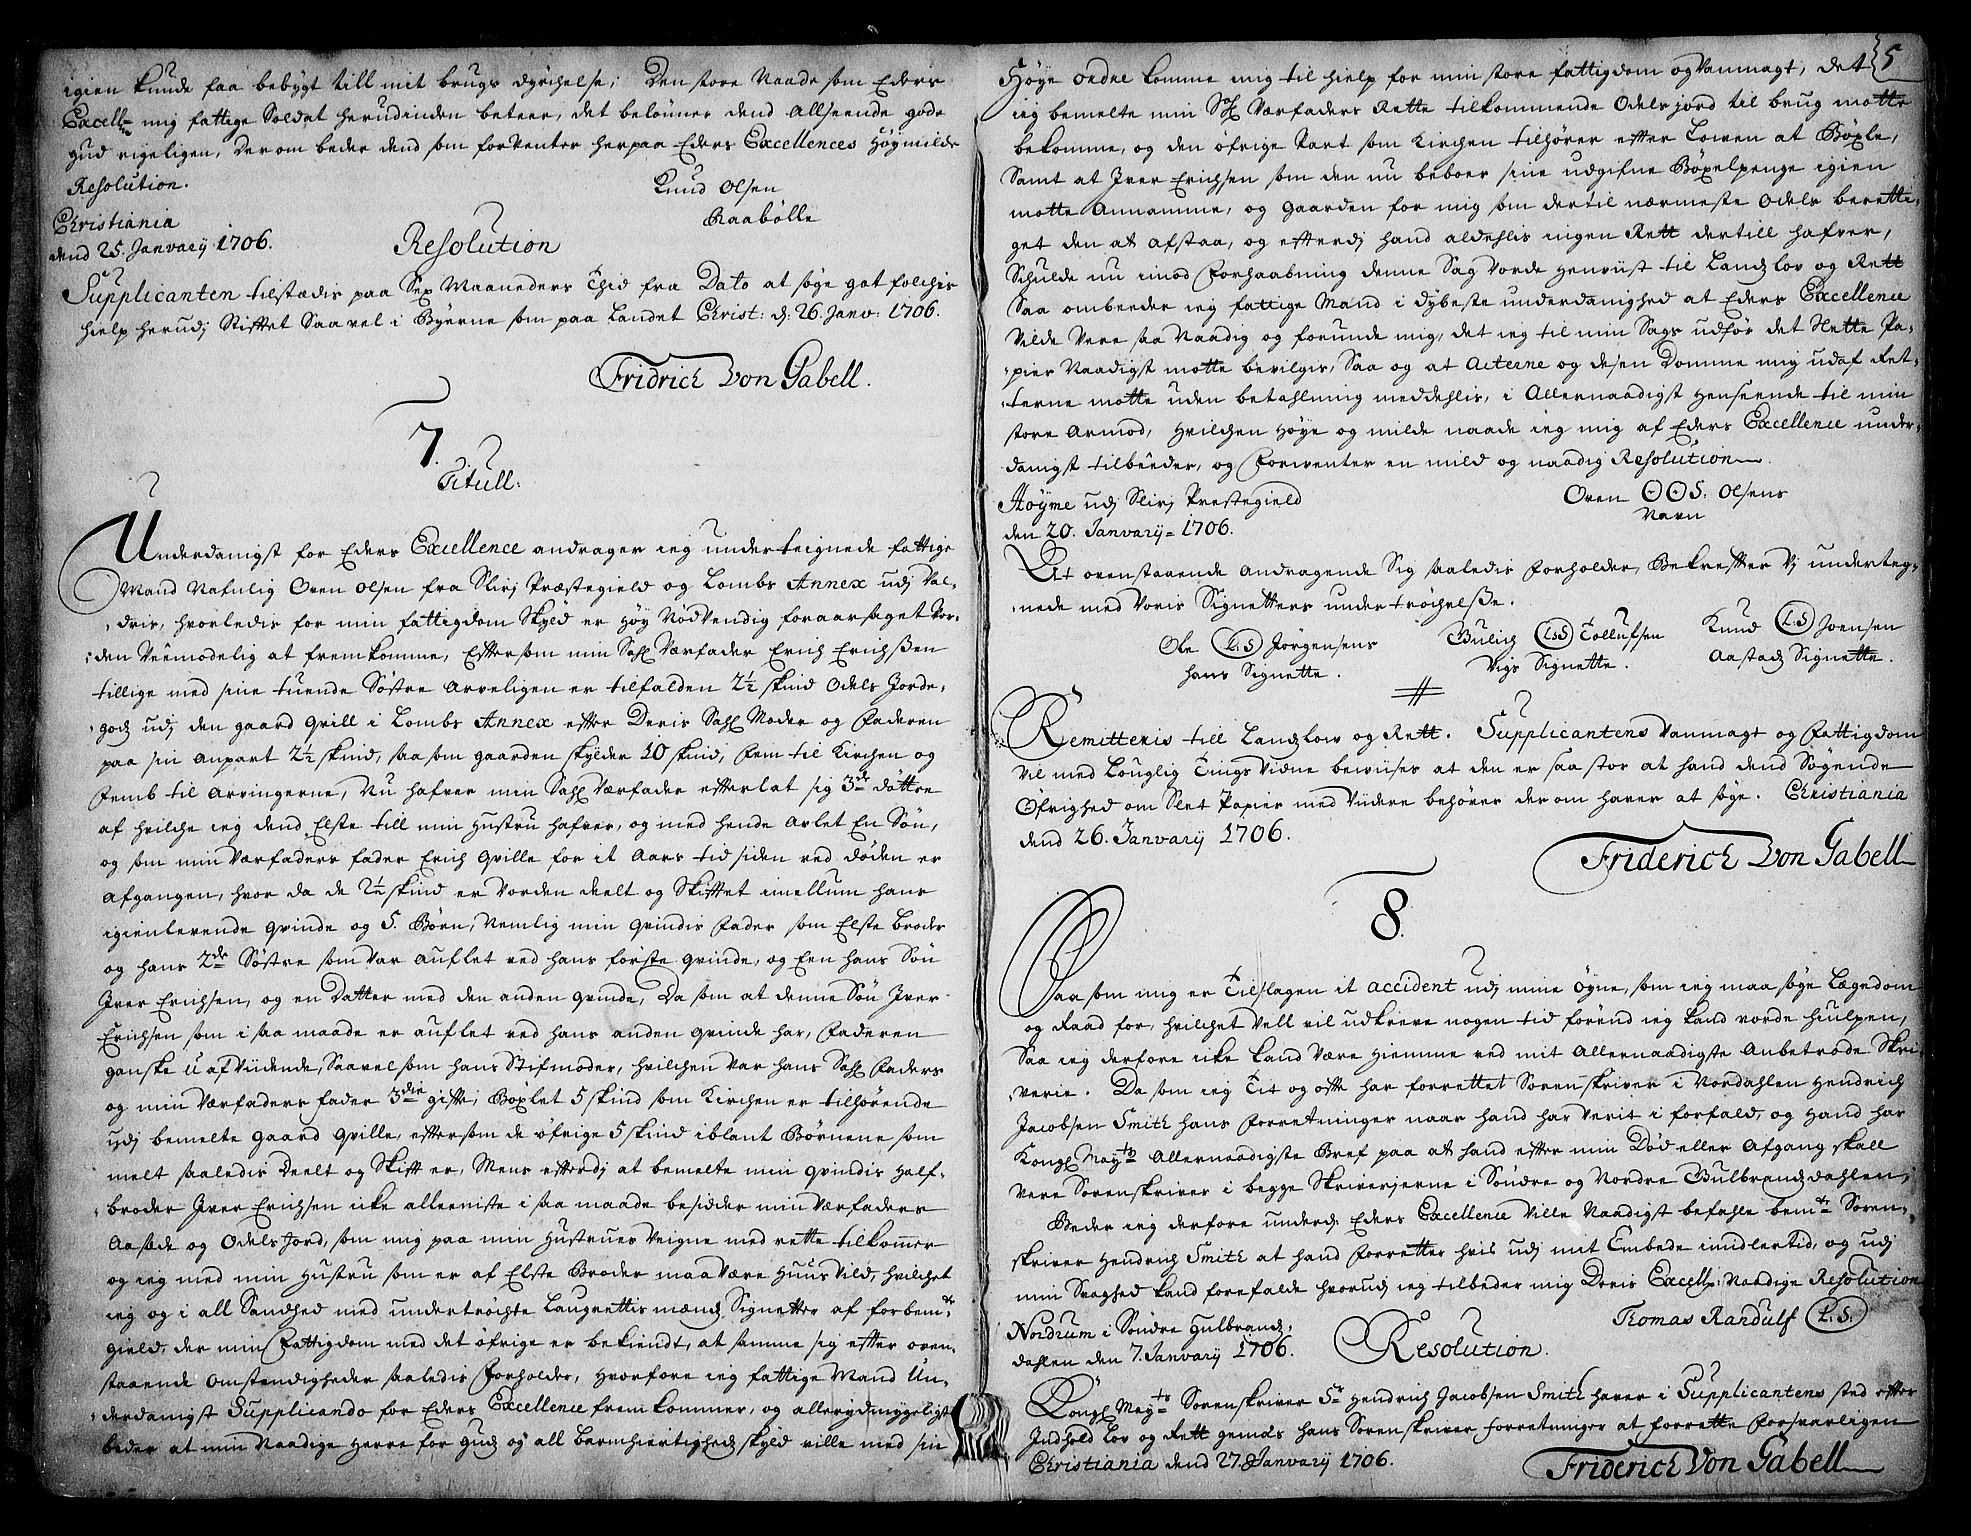 igien kunde faa bebygt till mit brugs dyrchelse; Den store Naade som Eders
Excell: mig fattige Soldat herudinden beteer, det belønner dend Allseende gode
gud rigeligen, Derom beder dend som forventer herpaa Eders Excellences Høgmilde
Resolution.
Knud Olsen
Raabølle
Christiania
dend 25. January 1706.
Resolution
Supplicanten tilstædis paa Sex Maaneders Thid fra Dato at søge got folchis
hielp herudj Stiftet Saavel i Byerne som paa Landet Christ: d: 26. Janv: 1706.
Fridrich Von Gabell.
7.
Titull:
Underdanigst for Eders Excellence andrager ieg underteignede fattige
Mand Nafnlig Oven Olsen fra Slirj Præstegield og Lombs Annex udj Val-
dris, hvorledis for min fattigdom Skyld er høy Nødvendig foraarsaget vor-
den Veemodelig at fremkomme, Eftersom min Sahl Værfader Erich Erichssen
tillige med sine tuende Søstre arveligen er tilfalden 2½ skind Odels Jorde-
godz udj den gaard Qvill i Lombs Annex efter Deris Sahl Moder og Faderen
paa sin anpart 2½ skind, saa som gaarden skylder 10 skind, Fem til Kirchen og
Femb til Arvingerne, Nu hafver min Sahl Værfader efterlat sig 3de døttre
af hvilche ieg dend Elste till min Hustru hafver, og med hende avlet En Søn,
og som min Værfaders fader Erich Qville for it Aars tid siden ved døden er
afgangen, hvor da de 2½ skind er Vorden deelt og Skiftet imellum hans
igienlevende qvinde og 5. Børn, Nemlig min qvindis Fader som Elste broder
og hans 2de Søstre som var auflet ved hans første qvinde, og Een hans Søn
Iver Erichsen, og en Datter med den anden qvinde, Da som at denne Søn Iver
Erichsen som i saa maade er auflet ved hans anden qvinde har, Faderen
ganske uafvidende, Saavel som hans Stifmoder, hvilchen var hans Sahl Faders
og min Værfaders fader 3die gifte, Bøxlet 5 skind som Kirchen er tilhørende
udj bemelte gaard Qville, eftersom de øfrige 5 skind iblant Børnene som
melt saaledis Deelt og Skift er, Mens efterdj at bemelte min qvindis Half-
broder Iver Erichsen icke alleeniste i saa maade besidder min Værfaders
Aasæde og Odels Jord, som mig paa min Hustrues Veigne med rette tilkommer
og ieg med min Hustru som er af Elste Broder maa Være Huus Vild, hvilchet
ieg og i all Sandhed med undertrøchte Laugrettis mænds Signetter af forbemte
gield, der min Fattigdom med det øfrige er bekiendt, at samme sig efter oven-
staaende Omstendigheder saaledis forholder, Hvorfore ieg fattige Mand Un-
derdanigst Supplicando for Eders Excellence fremkommer, og allerydmygeligst
beder at min Naadige Herre for Gudz og all Barmhiertighedz skyld ville med sin
5
Høye ordre komme mig til hielp for min store fattigdom og Vanmagt, det
ieg bemelte min Sahl Værfaders Rette tilkommende Odels jord til brug motte
bekomme, og den øfrige Part som Kirchen tilhører efter Lowen at Bøxle,
Samt at Iver Erichsen som den nu beboer sine udgifne Bøxelpenge igien
motte Annamme, og gaarden for mig som dertil nærmeste Odels beretti-
get den at afstaa, og efterdj hand aldehlis ingen Rett dertill hafver,
Schulde nu imod Forhaabning denne Sag Vorde henviist til Landzlov og Rett
Saa ombeeder ieg fattige Mand i dybeste underdanighed at Eders Excellence
Vilde Vere saa Naadig og forunde mig, det ieg til min Sags udfør det Slette Pa-
pier Naadigst motte bevilgis, Saa og at acterne og desen Domme mig udaf Ret-
terne motte uden betahlning meddehlis, i Allernaadigst henseende til min
store Armod, Hvilchen Høye og milde naade ieg mig af Eders Excellence under-
danigst tilbeeder, og Forwenter en mild og naadig Resolution
Høyme udj Slirj Prestegield
den 20. January 1706.
Oven OOS: Olsens
Navn
At ovenstaaende andragende Sig saaledis forholder, Bekrefter Vj underteg-
nede med Voris Signetters undertrøchelse.
Ole L.S Jørgensens
hans Signette.
LS Tollufsen
Vigs Signette.
Knud L.S Joensen
Aastadz Signette.
Remitteris till Landzlow og Rett. Supplicantens Vanmagt og Fattigdom
Vil med Louglig Tings Vidne bewiises at den er saa stor at hand dend Søgende
Øfrighed om Slet Papier med Viidere behører derom haver at søge. Christiania
dend 26. January 1706.
Friderich Von Gabell
8.
Saa som mig er Tilslagen it accident udj mine Øyne, som ieg maa søge Lægedom
og Raad for, hvilchet Vell vil udkreve nogen tid førend ieg kand vorde hiulpen,
Saa ieg derfore icke kand Være hiemme ved mit Allernaadigste Anbetrode Skri-
verie. Da som ieg Tit og ofte har forrettet Sorenskriver i Nordahlen Hendrich
Jacobsen Smith hans Forretninger naar hand har Verit i forfald, og Hand har
Kongl Maytz Allernaadigste Bref paa at hand efter min Død eller Afgang skall
Vere Sorenskriver i begge Skriverjerne i Søndre og Nordre Gulbrandzdahlen;
Beder ieg derfore underd: Eders Excellence Ville Naadigst befahle bemte Soren-
skriver Hendrich Smith at hand forretter hvis udj mit Embede imidlertid, og udj
min Svaghed kand forefalde hvorudj ieg tilbeder mig Deris Excell: Naadige Resolution
Nordrum i Søndre Gulbrandz-
dahlen den 7. January 1706.
Thomas Randulf L.S.
Resolution.
Kongl Mayts Sorenskriver Sr Hendrich Jacobsen Smith haver i Supplicantens sted efter
Indhold Lov og Rett gemds hans Sorenskriver forretninger at forrette Forsvarligen
Christiania dend 27. January 1706.
Friderich Von Gabell